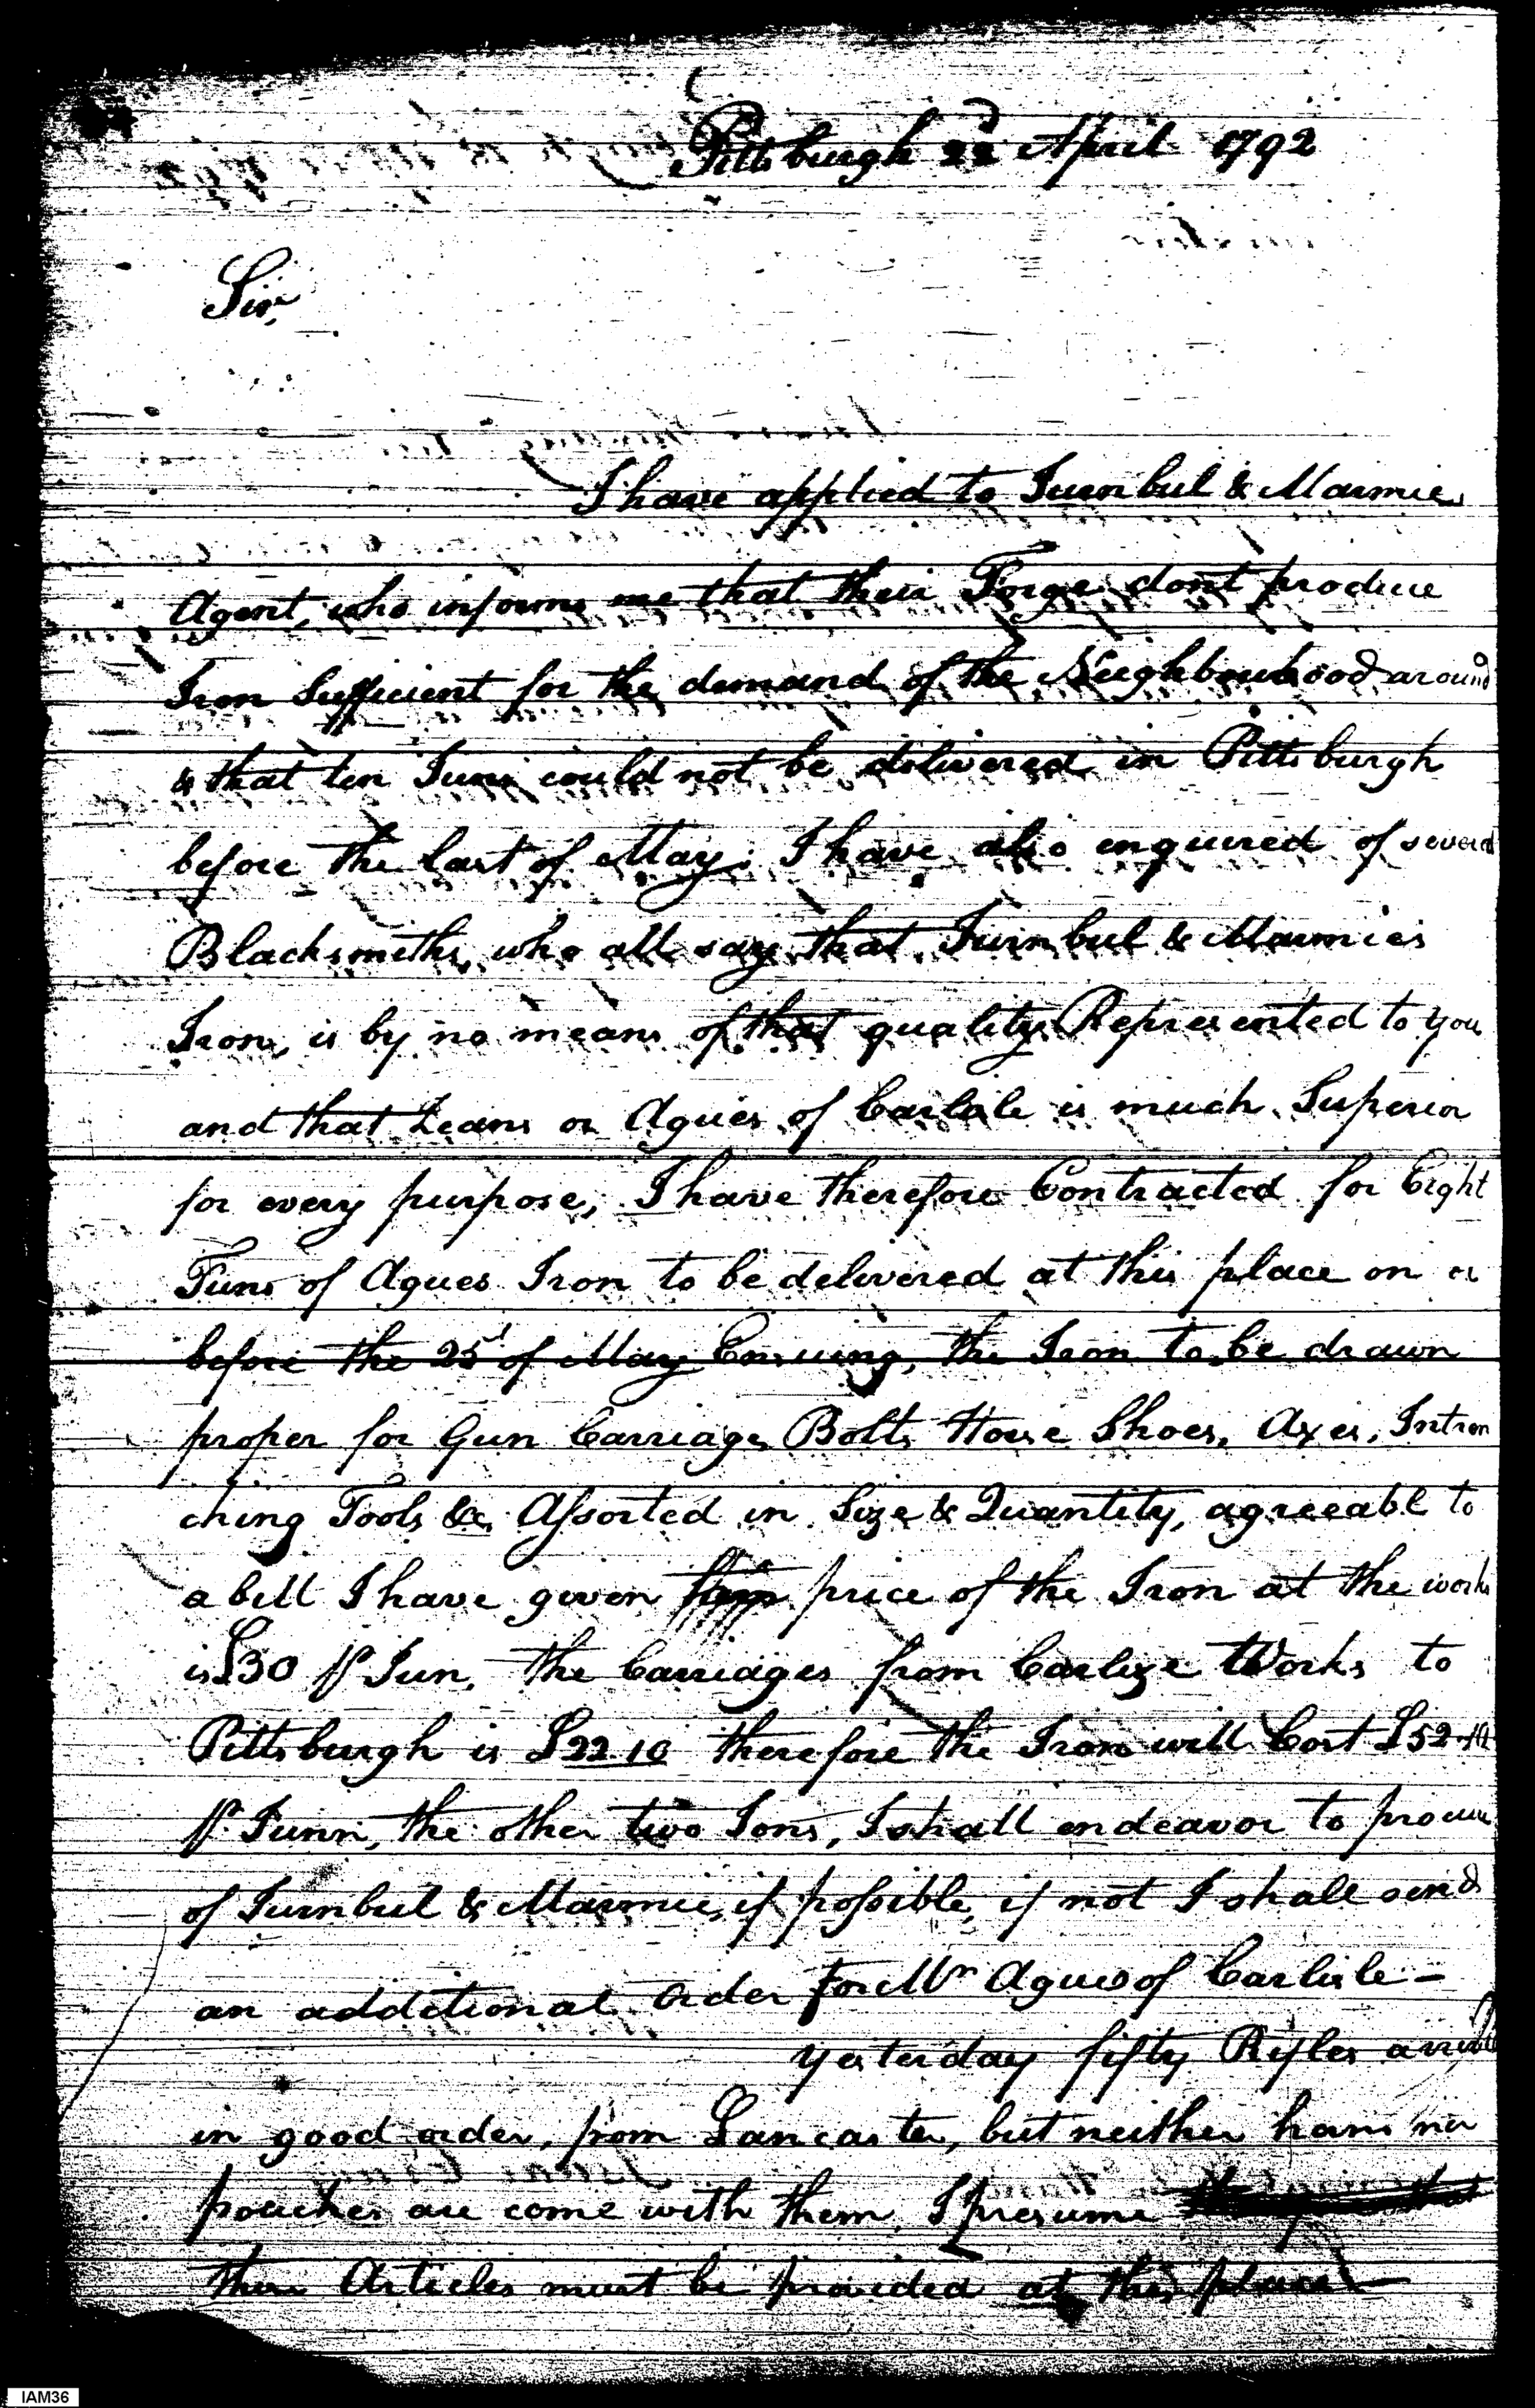 Pittsburgh 22d April 1792
Sir,
I have applied to Turnbul & Marmies
Agent, who informs me that their Forge dont produce
Iron Sufficient for the demand of the Neighbourhood around
& that ten Tuns could not be delivered in Pittsburgh
before the last of May. I have also enquired of several
Blacksmiths, who all say that Turnbul & Marmies
Iron, is by no means of that quality Represented to you
and that or Agues of Carlisle is much Superior
for every purpose, I have therefore Contracted for Eight
Tuns of Agues Iron to be delivered at this place on or
before the 25t of May Ensuing, the Iron to be drawn
proper for Gun Carriage Bolts Horse Shoes, Axes, Intren
ching Tools &c Assorted in Size & Quantity, agreeable to
a bill I have given price of the Iron at the works
is £30 pr Tun, the Carriages from Carlisle Works to
Pittsburgh is £22.10 therefore the Iron will Cost £52.10
pr Tunn, the other two Tons, I shall endeavor to procure
of Turnbul & Marmie, if possible, if not I shall send
an additional order for Mr Agues of Carlisle -
yesterday fifty Rifles arrived
in good order, from Lancaster, but neither horns nor
pouches are come with them, I presume
these Articles must be provided at this place -
IAM36